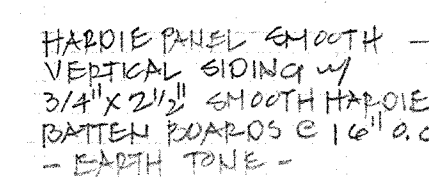 HARDIE PANEL SMOOTH -
VERTICAL SIDING w/
3/4" X 2 1/2" SMOOTH HARDIE
BATTEN BOARDS @ 16" O.C
- EARTH TONE -